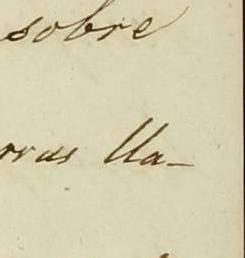 sobre
rras lla-